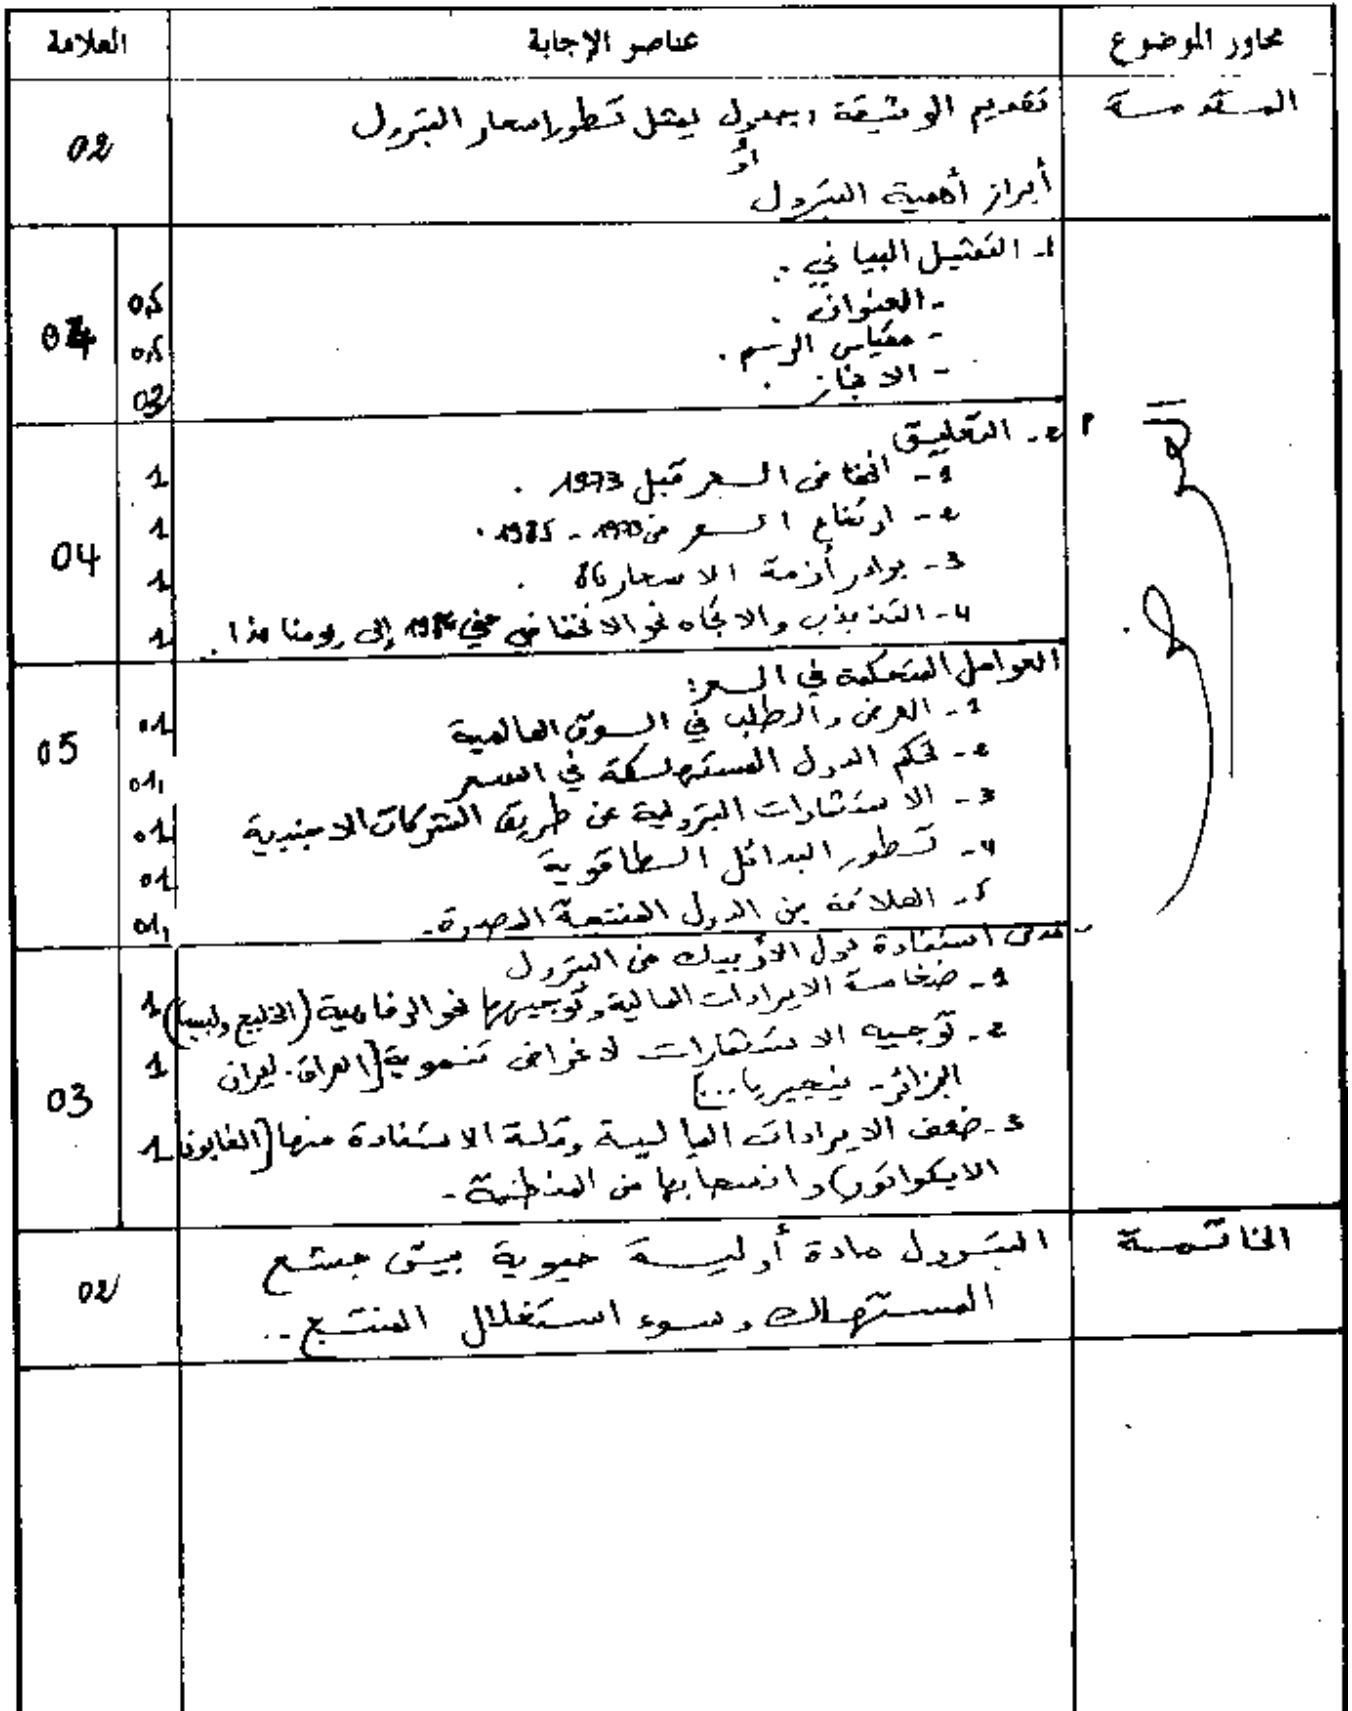 محاور الموضوع
عناصر الإجابة
العلامة
المقدمة
تقديم الوثيقة : جدول يمثل تطور اسعار البترول
أو
أبراز أهمية البترول
02
1- التمثيل البياني :
- العنوان . 0,5
- مقياس الرسم . 0,5
- الانجاز . 03
04
2- التعليق
1- انخفاض السعر قبل 1973 . 1
2- ارتفاع السعر من 1973 - 1985 . 1
3- بوادر أزمة الاسعار 86 . 1
4- التذبذب والاتجاه نحو الانخفاض إلى يومنا هذا . 1
04
العوامل المتحكمة في السعر :
1- العرض والطلب في السوق العالمية 01
2- تحكم الدول المستهلكة في السعر 01
3- الاستثمارات البترولية عن طريق الشركات الاجنبية 01
4- تطور البدائل الطاقوية 01
5- العلاقة بين الدول المنتجة المصدرة . 01
05
- مدى استفادة دول الأوبيك من البترول
1- ضخامة الايرادات المالية وتوجيهها نحو الرفاهية (الخليج وليبيا) 1
2- توجيه الاستثمارات لاغراض تنموية [العراق - ايران 1
الجزائر - نيجيريا ...]
3- ضعف الايرادات المالية وقلة الاستفادة منها (الغابون 1
الايكوادور) وانسحابها من المنظمة -
03
الخاتمة
البترول مادة أولية حيوية بين جشع
المستهلك وسوء استغلال المنتج ..
02